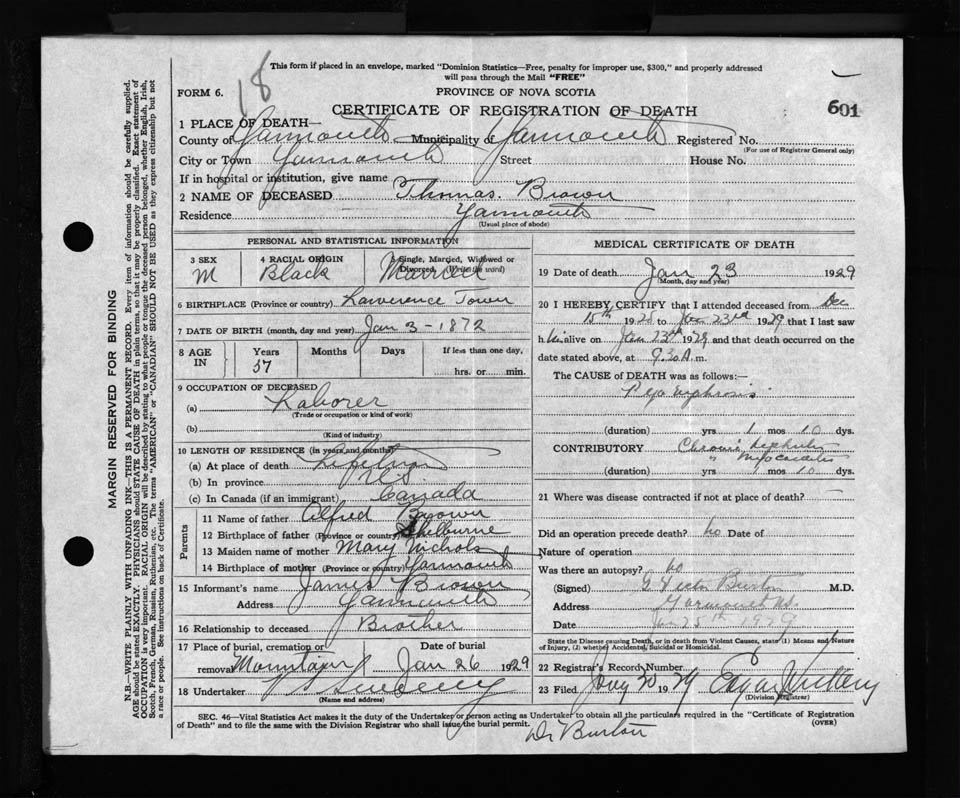 18
This form if placed in an envelope, marked "Dominion Statistics—Free, penalty for improper use, $300," and properly addressed
will pass through the Mail "FREE"
FORM 6.
PROVINCE OF NOVA SCOTIA
601
CERTIFICATE OF REGISTRATION OF DEATH
1 PLACE OF DEATH—
County of Yarmouth Municipality of Yarmouth Registered No.
(For use of Registrar General only)
City or Town Yarmouth Street House No.
If in hospital or institution, give name
2 NAME OF DECEASED Thomas. Brown
Residence Yarmouth
(Usual place of abode)
PERSONAL AND STATISTICAL INFORMATION
3 SEX 4 RACIAL ORIGIN 5 Single, Married, Widowed or
Divorced, (Write the word)
M Black Married
6 BIRTHPLACE (Province or country) Lawerence Town
7 DATE OF BIRTH (month, day and year) Jan 3 - 1872
8 AGE IN Years Months Days If less than one day,
57 hrs. or min.
9 OCCUPATION OF DECEASED
(a) Laborer
(Trade or occupation or kind of work)
(b)
(Kind of industry)
10 LENGTH OF RESIDENCE (in years and months)
(a) At place of death
(b) In province
(c) In Canada (if an immigrant) Canada
Parents
11 Name of father Alfred Brown
12 Birthplace of father (Province or country) Shelburne
13 Maiden name of mother Mary Nichols
14 Birthplace of mother (Province or country) Yarmouth
15 Informant's name James Brown
Address Yarmouth
16 Relationship to deceased Brother
17 Place of burial, cremation or Date of burial
removal Mountain Jan 26 1929
18 Undertaker Sweeny
(Name and address)
MEDICAL CERTIFICATE OF DEATH
19 Date of death Jan 23 1929
(Month, day and year)
20 I HEREBY CERTIFY that I attended deceased from Dec
15th 1928 to Jan 23rd 1929 that I last saw
him alive on Jan 23rd 1929 and that death occurred on the
date stated above, at 9.30 A.m.
The CAUSE of DEATH was as follows:—
Pyo nephrosis
(duration) yrs 1 mos 10 dys.
CONTRIBUTORY Chronic Nephritis
" Myocarditis
(duration) yrs 1 mos 10 dys.
21 Where was disease contracted if not at place of death?
Did an operation precede death? no Date of
Nature of operation
Was there an autopsy? no
(Signed) Burton M.D.
Address Yarmouth N.S.
Date Jan 25th 1929
State the Disease causing Death, or in death from Violent Causes, state (1) Means and Nature
of Injury, (2) whether Accidental, Suicidal or Homicidal.
22 Registrar's Record Number
23 Filed 1929 Edgar
(Division Registrar)
SEC. 46—Vital Statistics Act makes it the duty of the Undertaker or person acting as Undertaker to obtain all the particulars required in the "Certificate of Registration
of Death" and to file the same with the Division Registrar who shall issue the burial permit.
(OVER)
Dr Burton
MARGIN RESERVED FOR BINDING
N.B.—WRITE PLAINLY WITH UNFADING INK—THIS IS A PERMANENT RECORD. Every item of information should be carefully supplied.
AGE should be stated EXACTLY. PHYSICIANS should STATE CAUSE OF DEATH in plain terms, so that it may be properly classified. Exact statement of
OCCUPATION is very important. RACIAL ORIGIN will be described by stating to what people or tongue the deceased person belonged, whether English, Irish,
Scotch, French, German, Russian, Ruthenian, etc. The terms "AMERICAN" or "CANADIAN" SHOULD NOT BE USED as they express citizenship but not
a race or people. See instructions on back of Certificate.